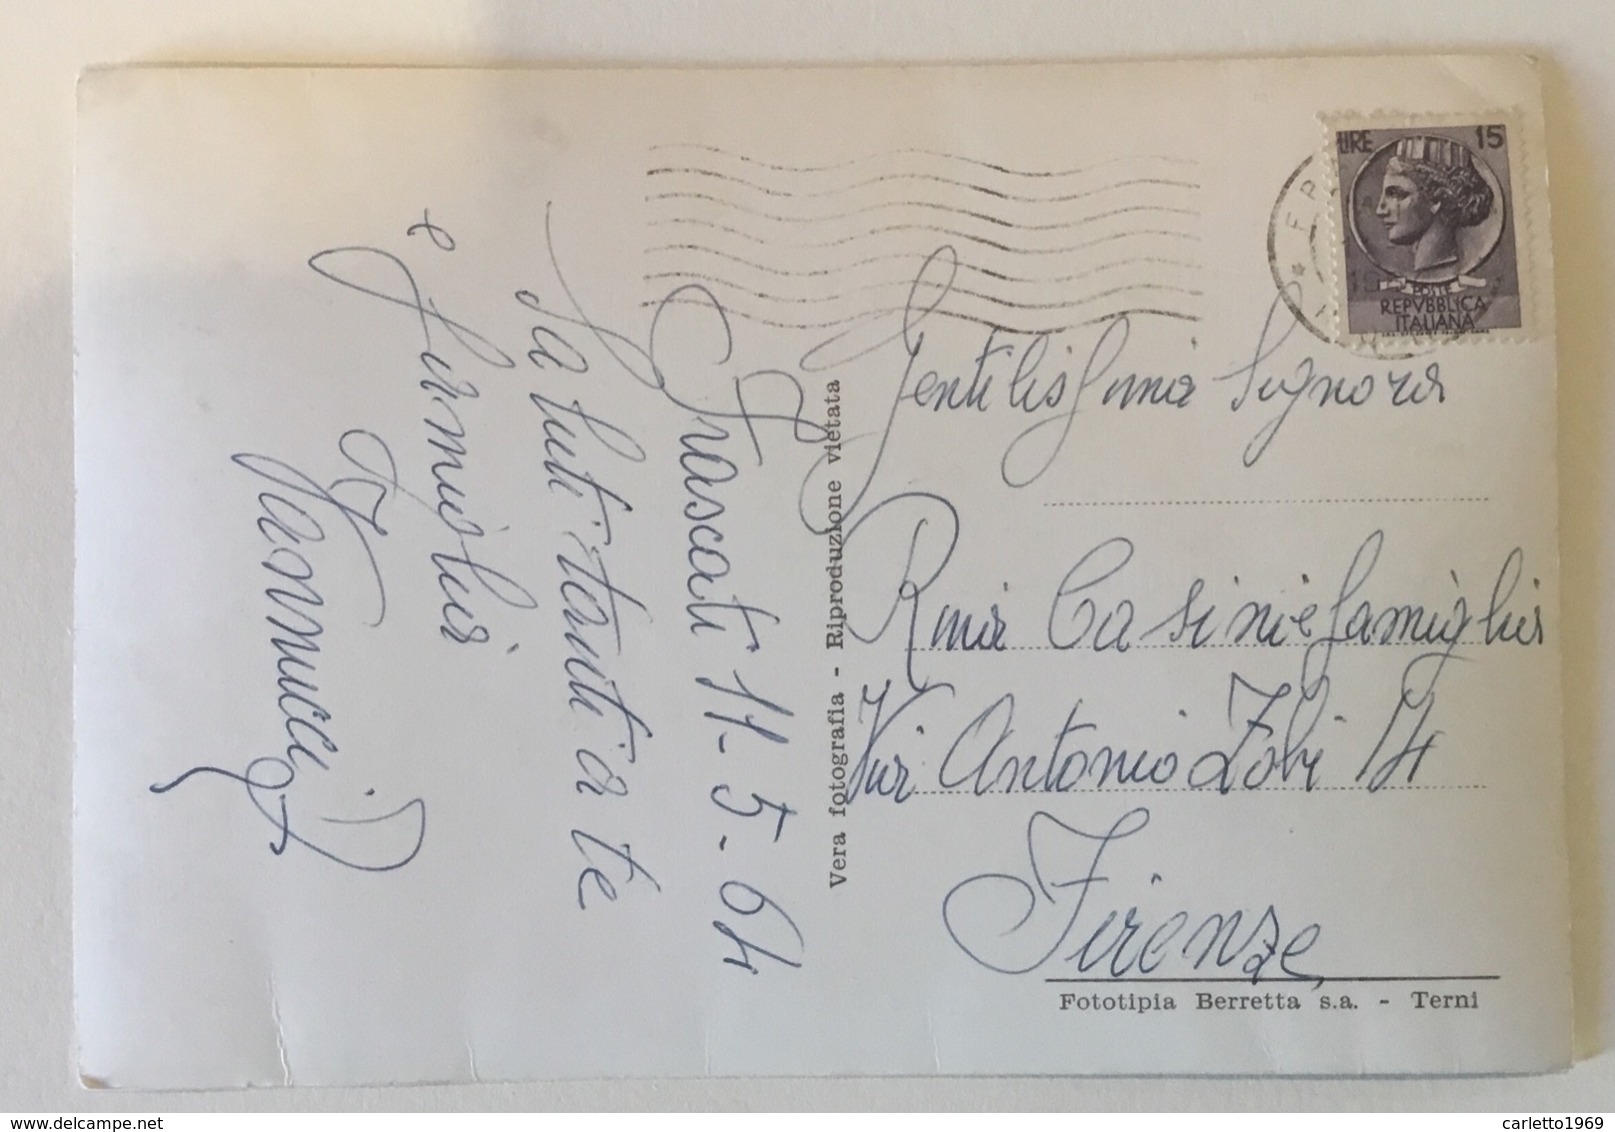 Frascati 11-5-64
Saluti tanti a te
e famiglia
Vera fotografia - Riproduzione vietata
LIRE 15
POSTE
REPVBBLICA
ITALIANA
Gentilissima Signora
Rina Casini e famiglia
Via Antonio Zobi 14
Firenze
Fototipia Berretta s.a. - Terni
delcampe.net
carletto1969